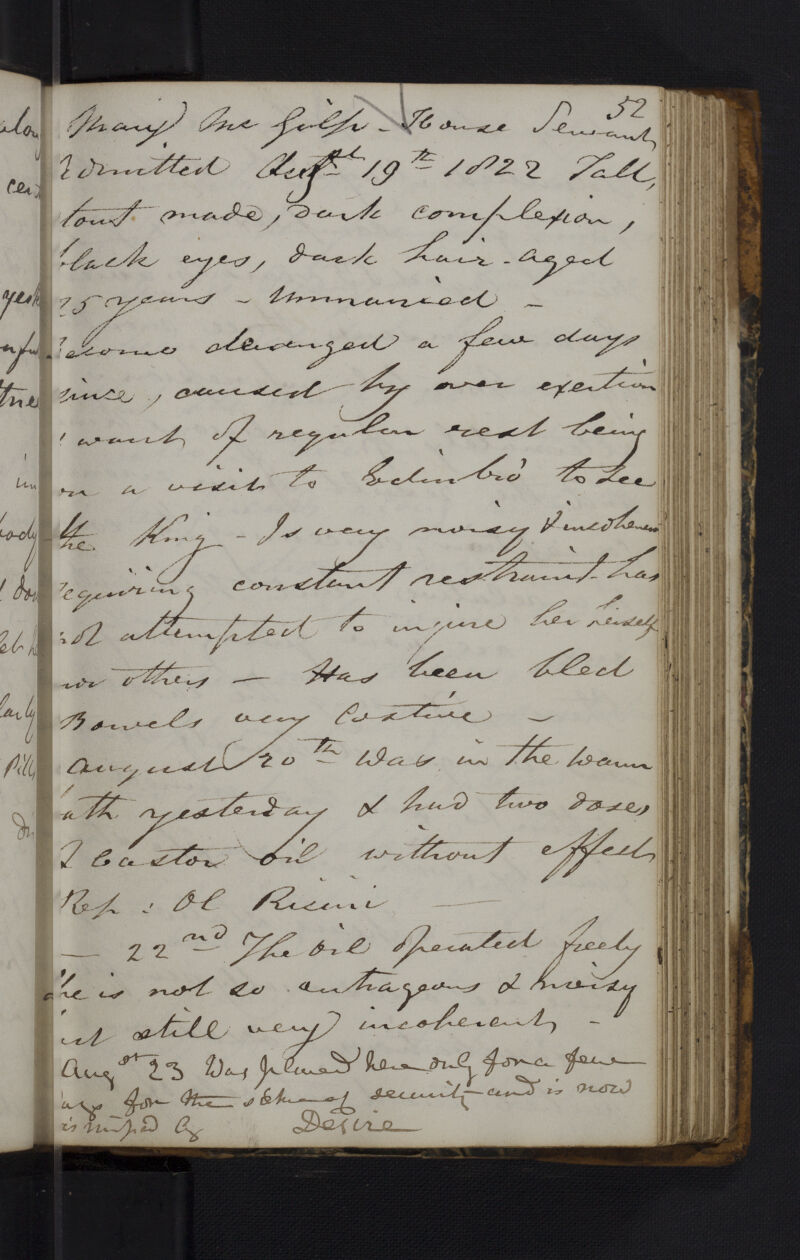 52
Mary Mc Gilp - House Servant
admitted Augst 19th 1822 Tall,
stout made, dark complexion,
black eyes, dark hair - aged
25 years - Unmarried -
Become deranged a few days
since, caused by over exertion
& want of regular rest being
on a visit to Edinbro' to see
the King - Is very noisy & incoherent
requiring constant restraint - has
not attempted to injure her herself
nor others - Has been bled
Bowels very Costive -
August 20th Was in the warm
bath yesterday & had two doses
of Castor oil without effect
Rep : Ol Ricini -
- 22nd The oil operated freely
she is not so outrageous & noisy
but still very incoherent -
Augst 23 Was placed here only for a few
days for the sake of security and is now
dismissed by Desire